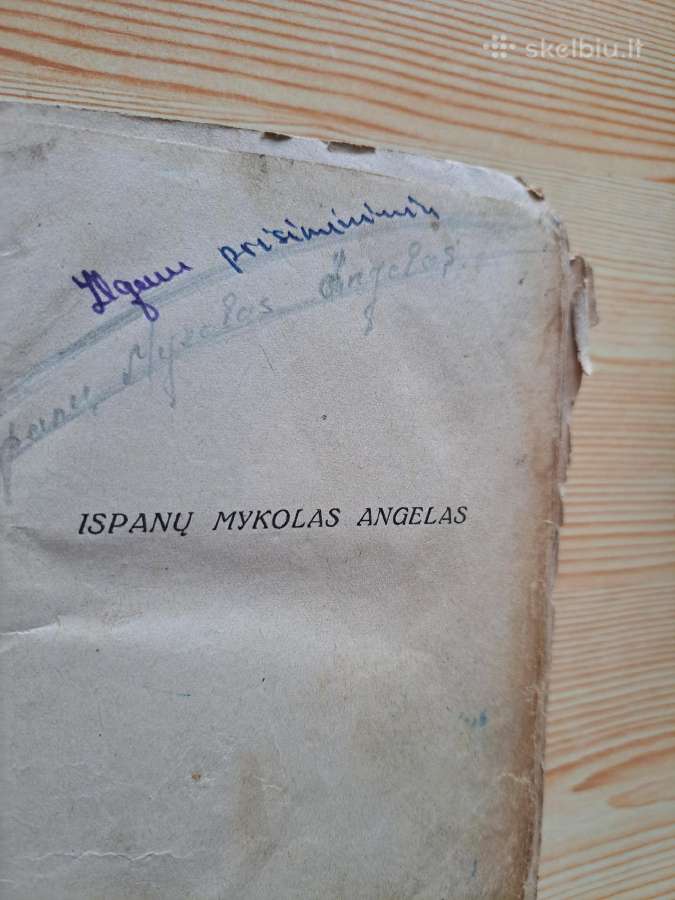 skelbiu.lt
Ilgam prisiminimui
Mykolas Angelas
ISPANŲ MYKOLAS ANGELAS